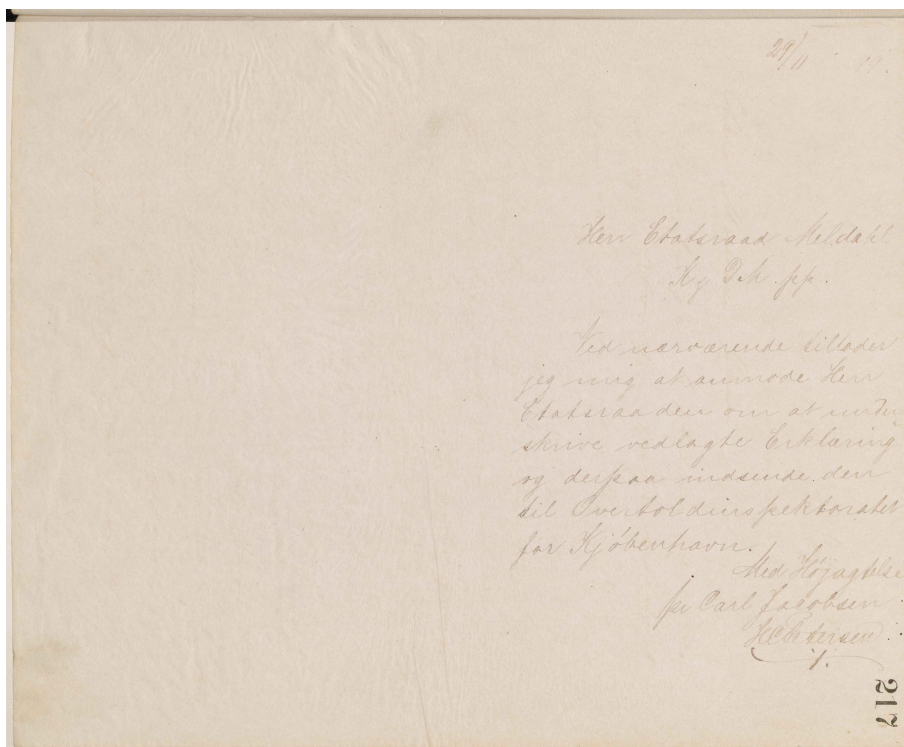 29/11
Herr Etatsraad Meldahl
K. af D. M. pp.
Ved nærværende tillader
jeg mig at anmode Herr
Etatsraaden om at under
skrive vedlagte Erklæring
og derpaa indsende den
til Overtoldinspektoratet
for Kjøbenhavn.
Med Højagtelse
pr Carl Jacobsen
H C Petersen
217